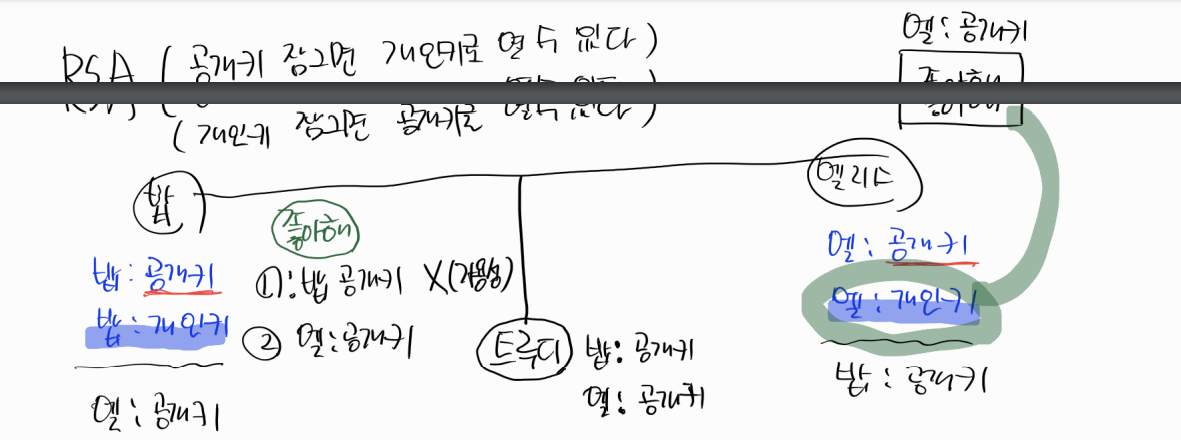 RSA ( 공개키 잠그면 개인키로 열 수 있다 )
( 개인키 잠그면 공개키로 열 수 있다 )
엘: 공개키
좋아해
밥
엘리스
좋아해
밥: 공개키
밥: 개인키
엘: 공개키
①: 밥 공개키 X(가용성)
② 엘: 공개키
트루디
밥: 공개키
엘: 공개키
엘: 공개키
엘: 개인키
밥: 공개키